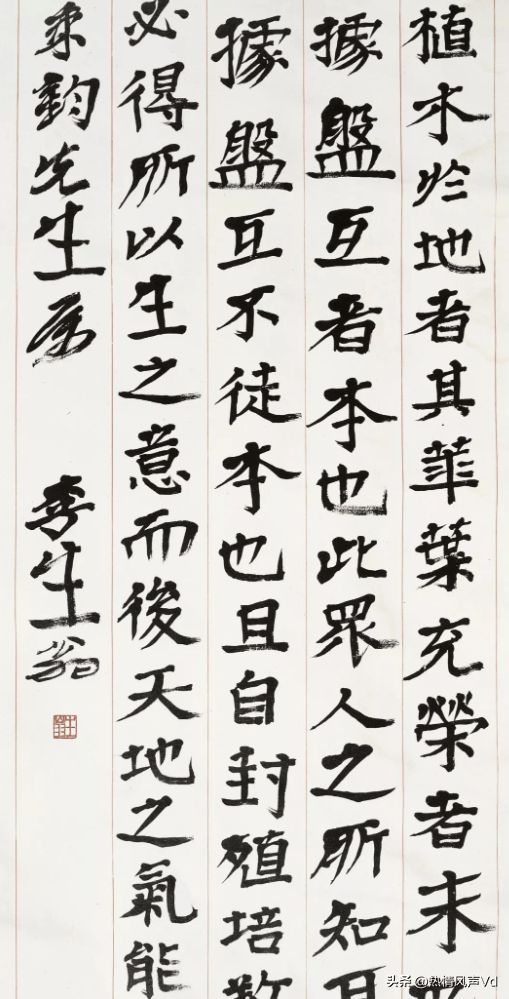 植木於地者其華葉充榮者末
據盤互者本也此眾人之所知
據盤互不徒本也且自封殖培
必得所以生之意而後天地之氣能
先生屬
李生翁
头条 @热情风声Vd